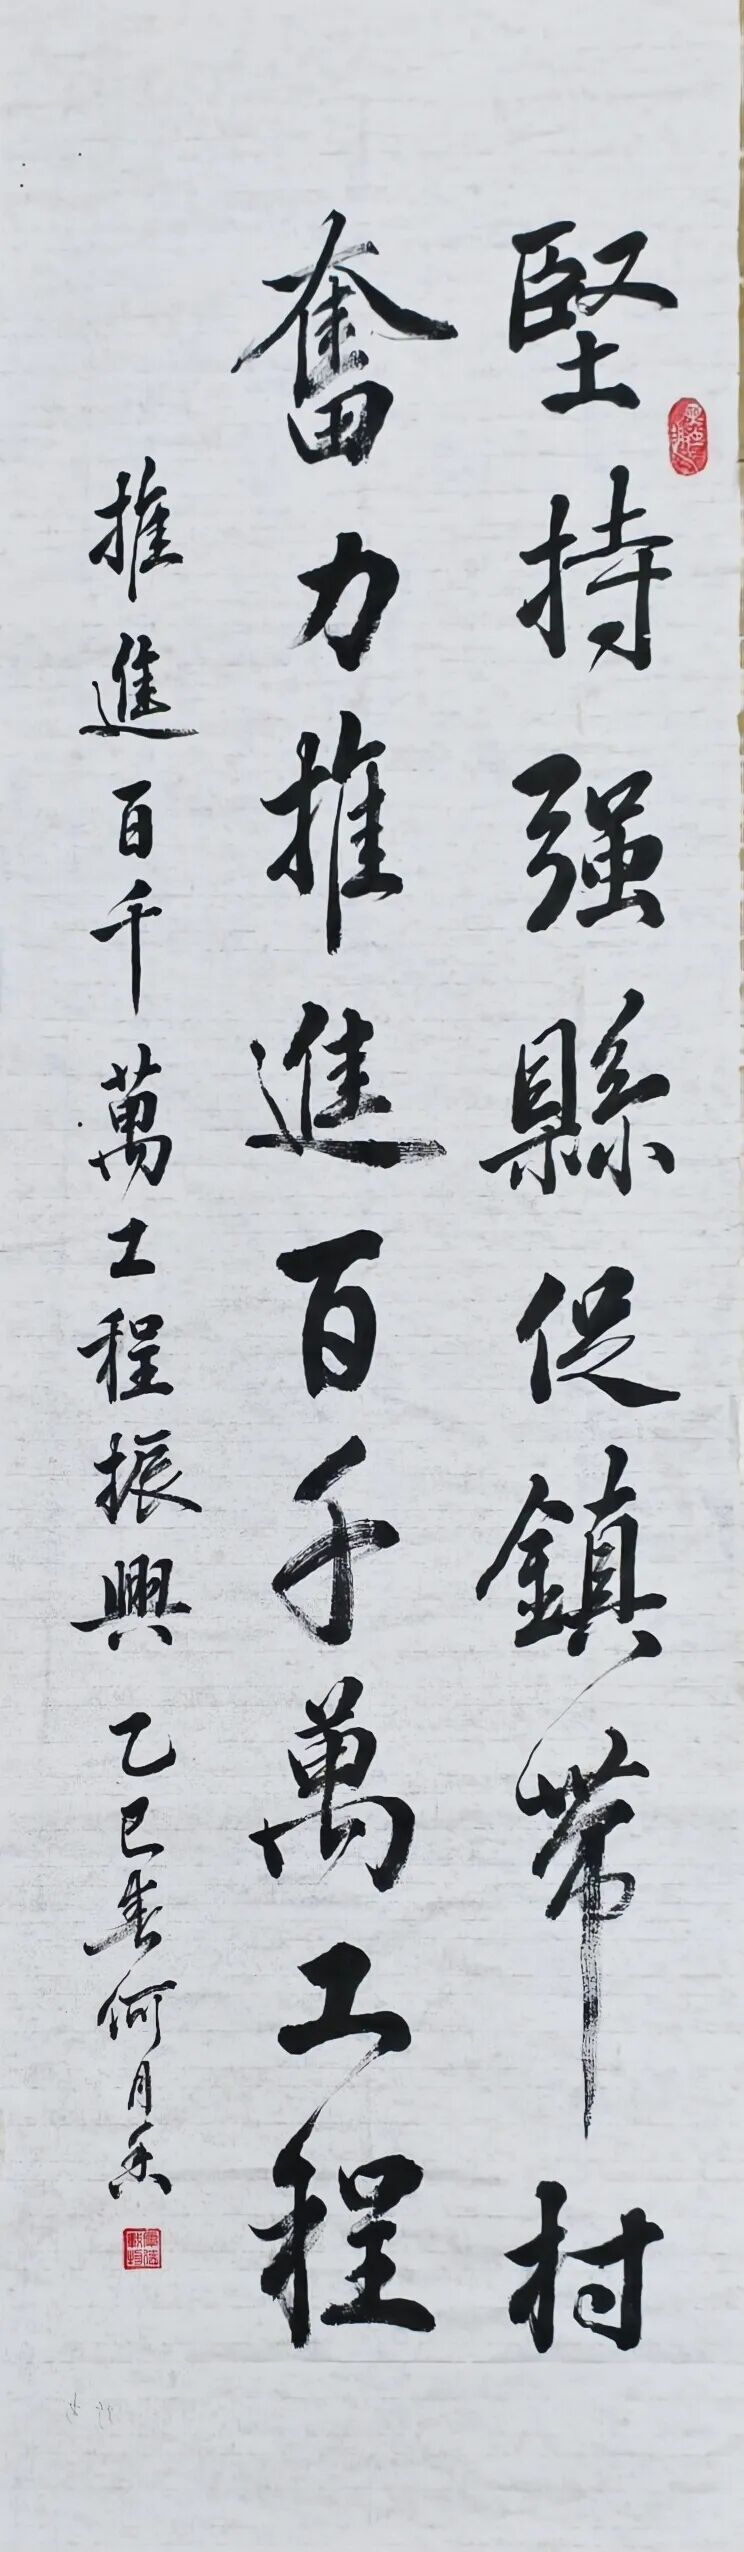 堅持强縣促鎮带村
奮力推進百千萬工程
推進百千萬工程振興 乙巳春何月香